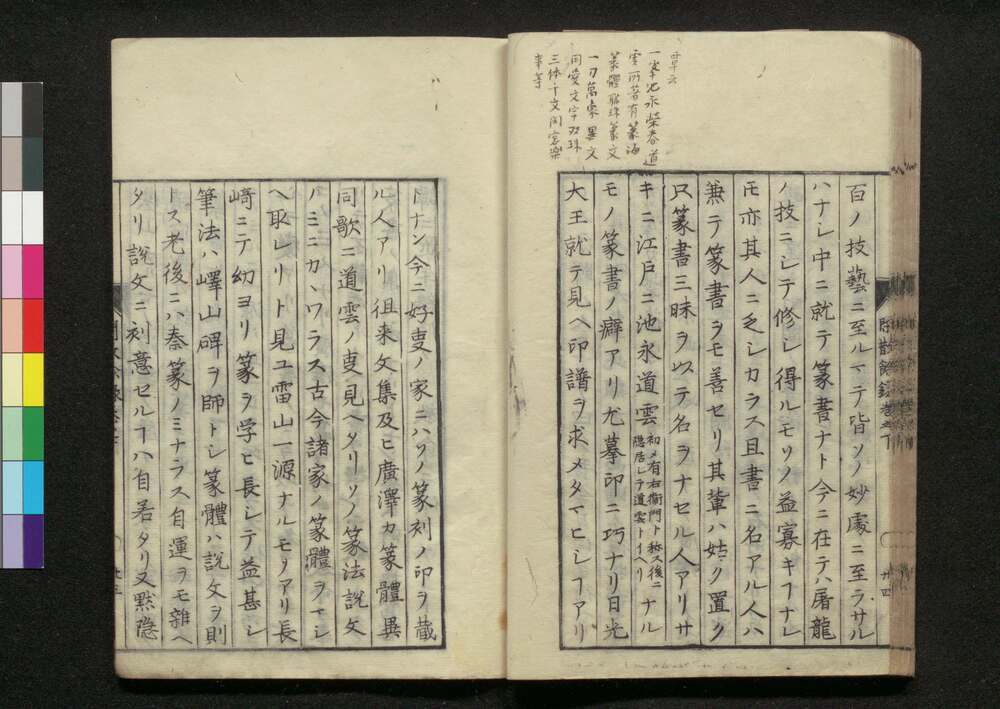 百ノ技藝ニ至ルマテ皆ソノ妙處ニ至ラサル
ハナシ中ニ就テ篆書ナト今ニ在テハ屠龍
ノ技ニシテ修シ得ルモノ益寡キヿナレ
モ亦其人ニ乏シカラス且書ニ名アル人ハ
兼テ篆書ヲモ善セリ其輩ハ姑ク置ク
只篆書三昧ヲ以テ名ヲナセル人アリサ
キニ江戸ニ池永道雲初メ有右衛門ト称ス後ニ隠居シテ道雲トイヘリナル
モノ篆書ノ癖アリ尤摹印ニ巧ナリ日光
大王就テ見ヘ印譜ヲ求メタマヒシヿアリ
一峯池永榮春道
雲所著有篆海
篆體聯珠篆文
一刀萬象異文
同愛文字
三体千文
トナン今ニ好叓ノ家ニハソノ篆刻ノ印ヲ蔵
ル人アリ徂来文集及ヒ廣澤カ篆體異
同歌ニ道雲ノ叓見ヘタリソノ篆法説文
ノミニカヽワラス古今諸家ノ篆體ヲマシ
ヘ取レリト見ユ雷山一源ナルモノアリ長
﨑ニテ幼ヨリ篆ヲ学ヒ長シテ益甚シ
筆法ハ嶧山碑ヲ師トシ篆體ハ説文ヲ則
トス老後ニハ秦篆ノミナラス自運ヲモ雜ヘ
タリ説文ニ刻意セルヿハ自若タリ又黙隠